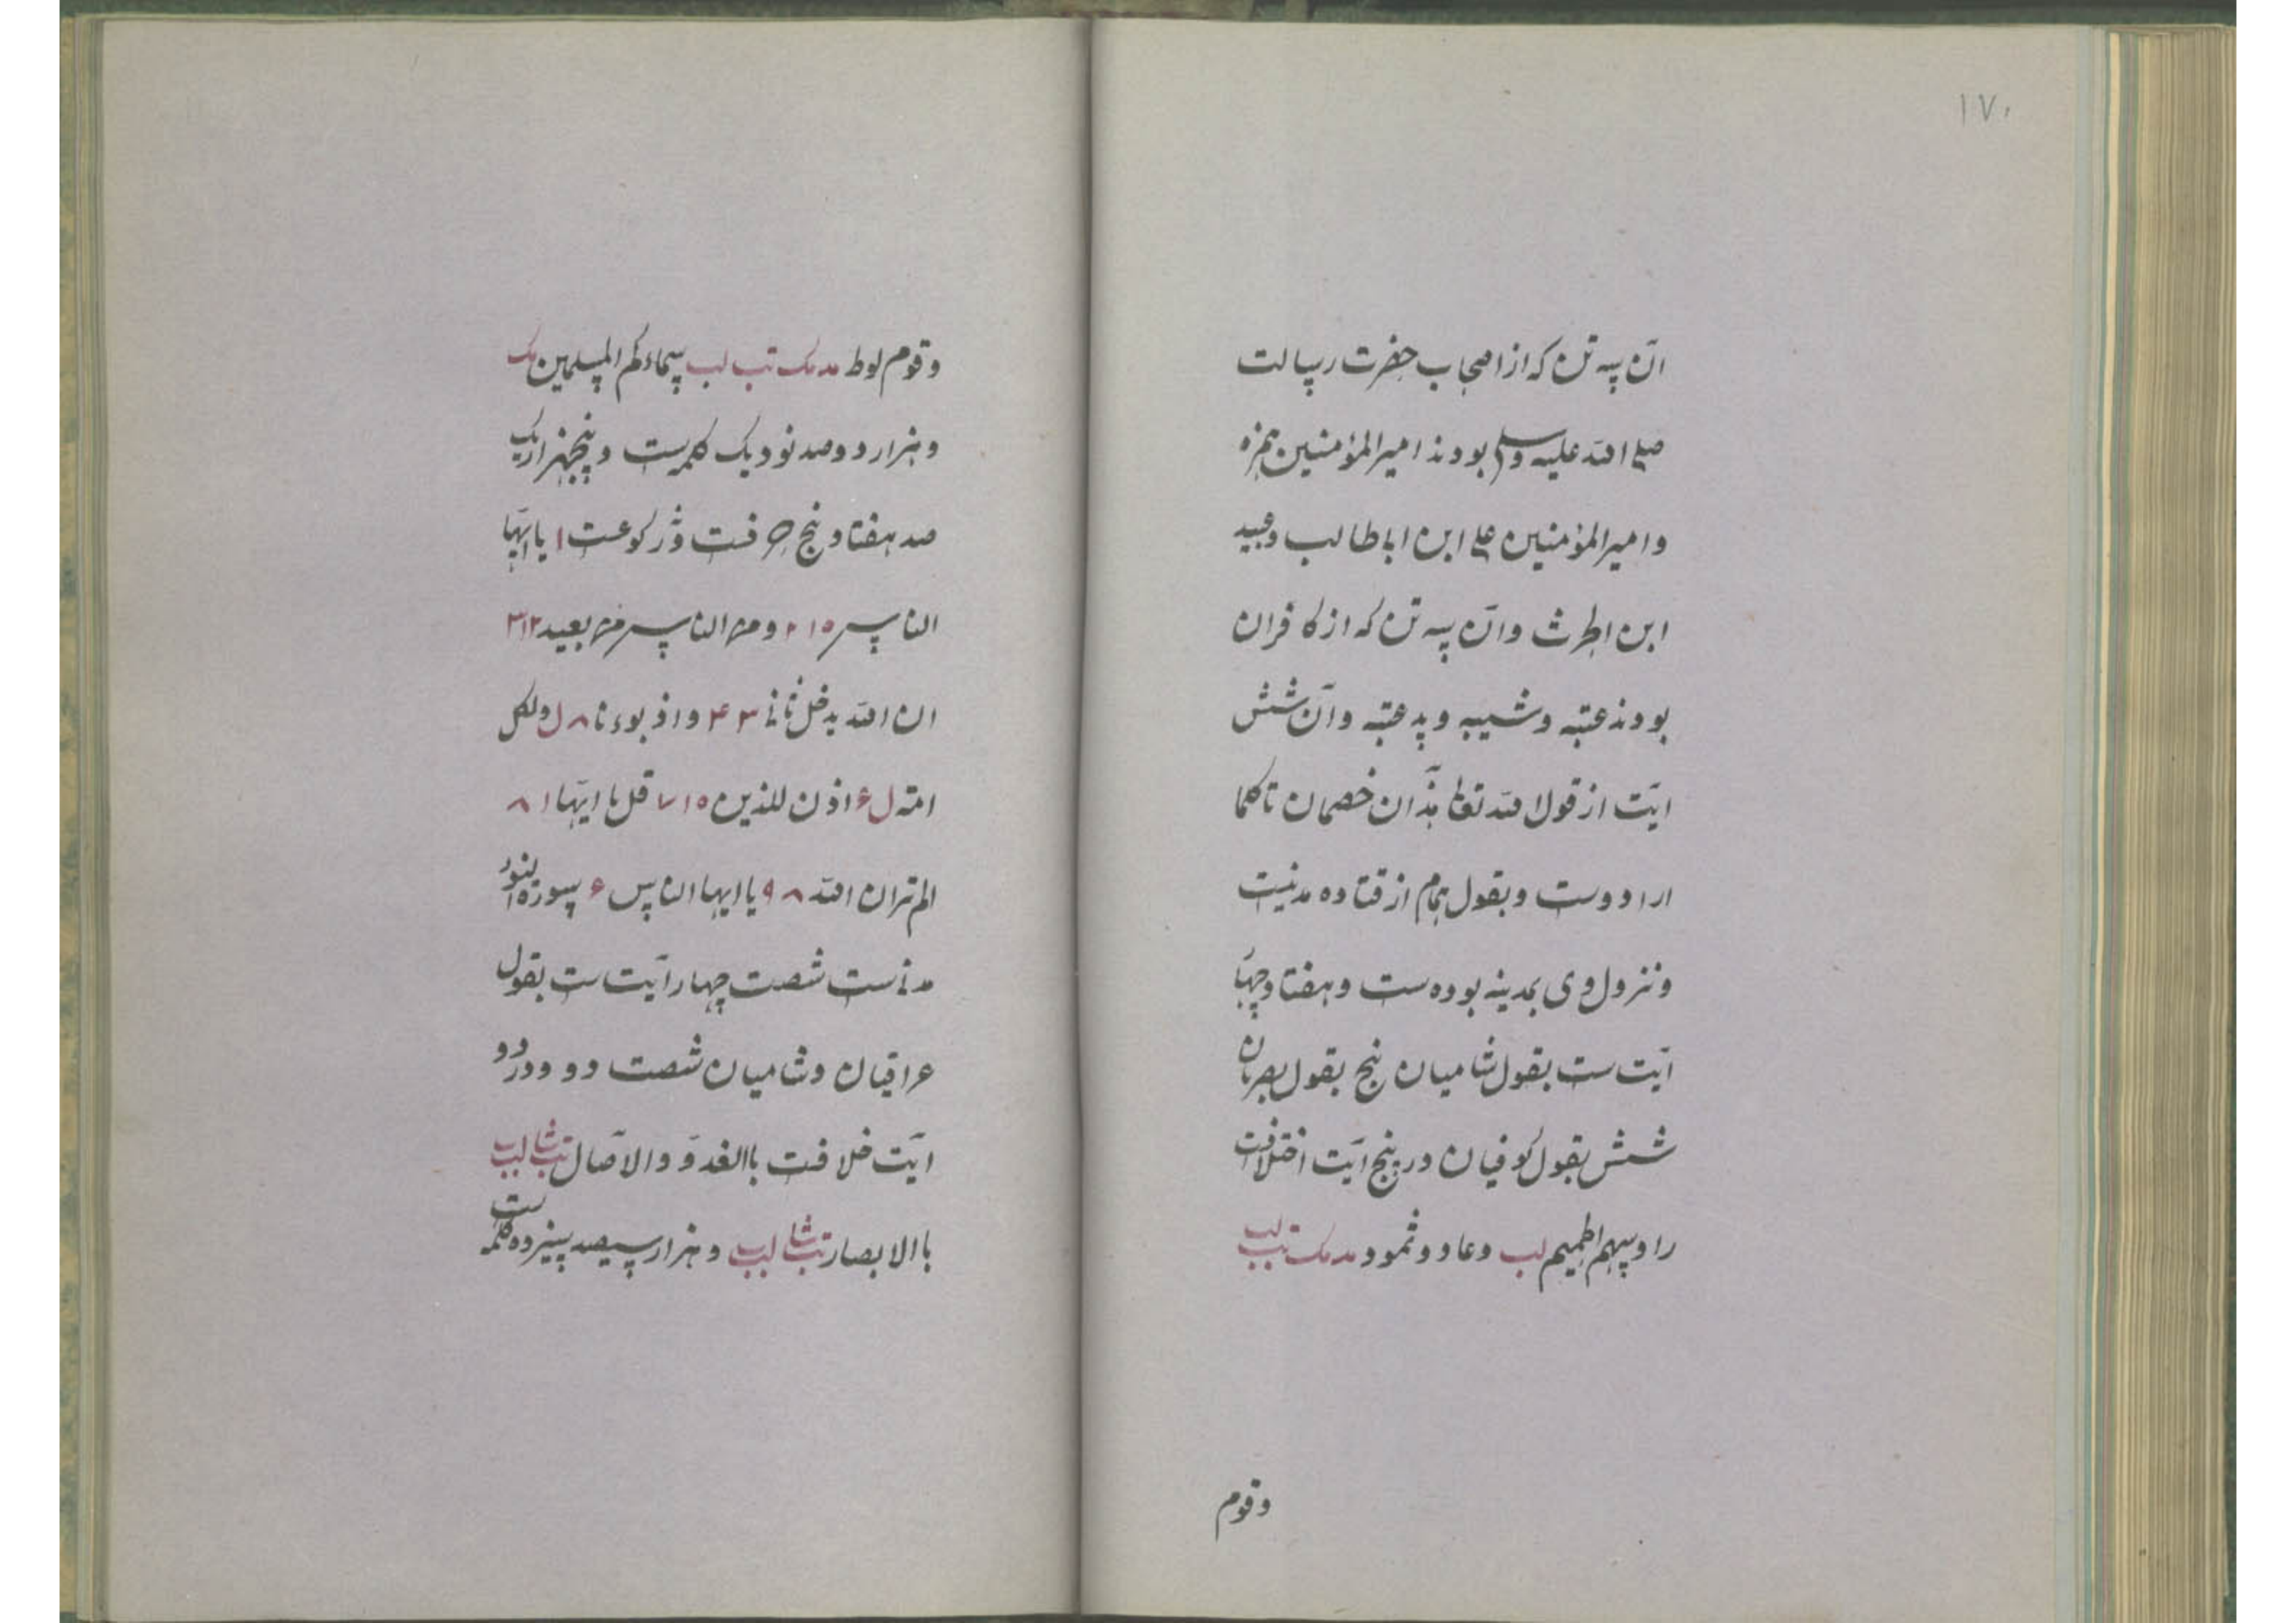 ١٧٠
آن سه تن که از اصحاب حضرت رسالت
صلی الله علیه وسلم بودند امیرالمؤمنین حمزه
وامیرالمؤمنین علی ابن اباطالب وعبید
ابن الحرث وآن سه تن که از کافران
بودند عتبه وشیبه وپد عتبه وآن شش
آیت از قول الله تعالی هذان خصمان تا کلما
ارادوست وبقول همام از قتاده مدنیت
ونزول وی بمدینه بوده ست وهفتاد چهآ
آیت ست بقول شامیان پنج بقول بصریان
شش بقول کوفیان در پنج آیت اختلافست
راوسهم الحمیم لب وعاد وثمود مد مک تب لب
وقوم
وقوم لوط مد مک تب لب سماءکم المسلمین مک
وهزار دوصد نود یک کلمه ست وپنجهزار یک
صد هفتاد پنج حرفست وژرکوعست ١ یا ایها
الناس ١٥ ٢ ومن الناس من بعید ١٢ ٣
ان الله یدخل ثانی ٣ ۴ واذ بوءنا ٨ ل ولکل
امته ل ۶ اذن للذین ١٥ ٧ قل یا ایها ١ ٨
الم تر ان الله ٨ ٩ یا ایها الناس ۶ سورة النور
مدنی ست شصت چهار آیت ست بقول
عراقیان وشامیان شصت دو ودر دو
آیت خلافست باالغدو والآصال تب شا لب
باالابصار تب شا لب وهزار سیصد سیزده کلمه ست